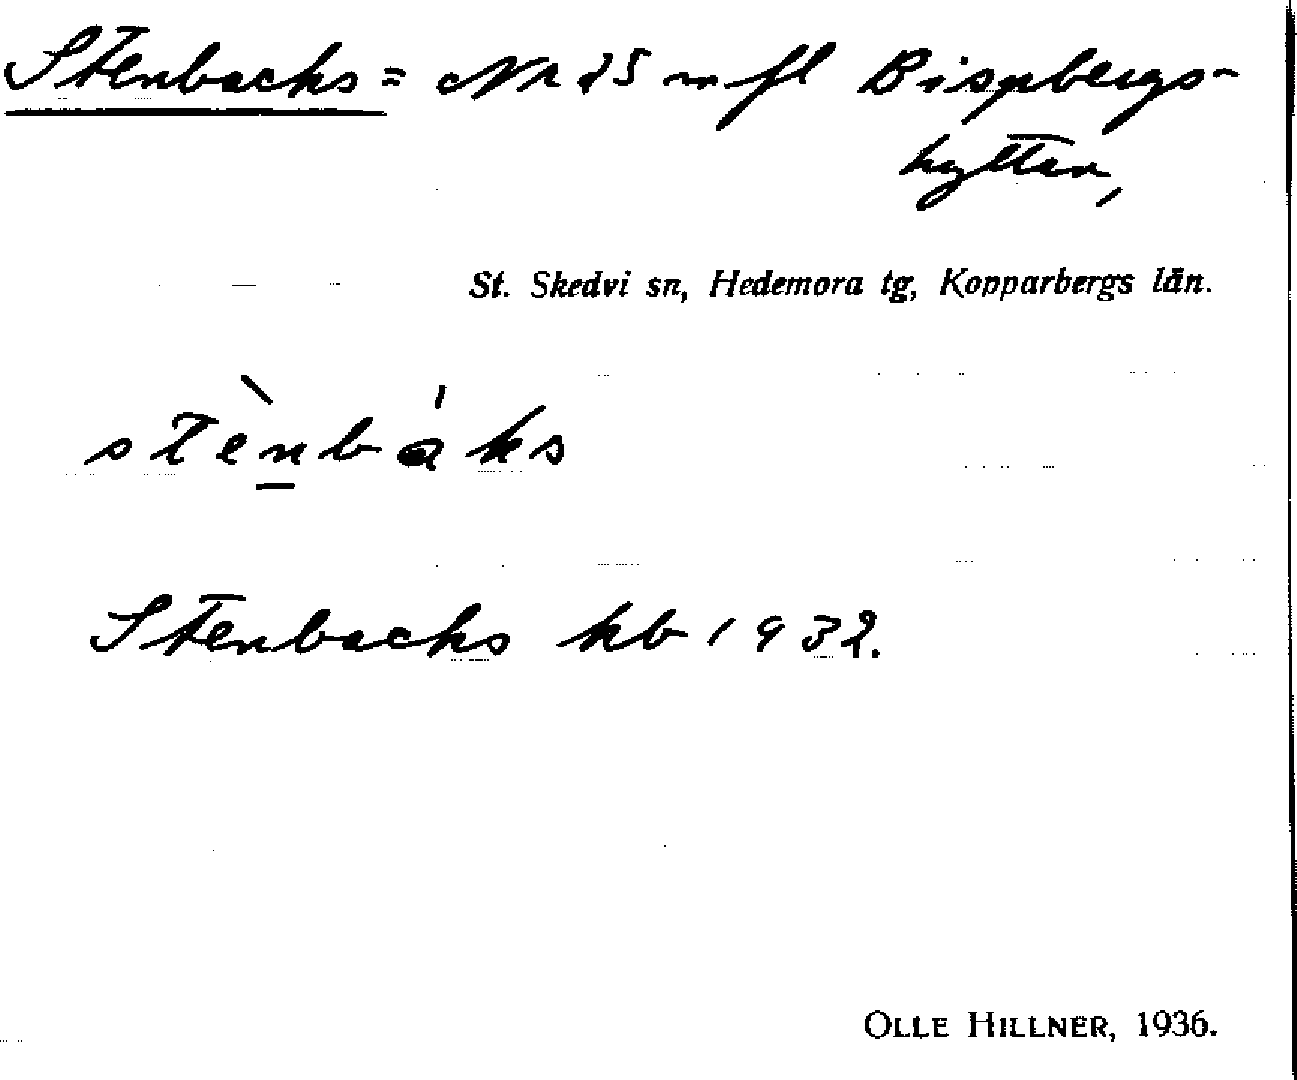 Stenbacks = Nr 25 m fl Bispbergs-
hyttan,
St. Skedvi sn, Hedemora tg, Kopparbergs län.
stènbáks
Stenbacks kb 1932.
OLLE HILLNER, 1936.